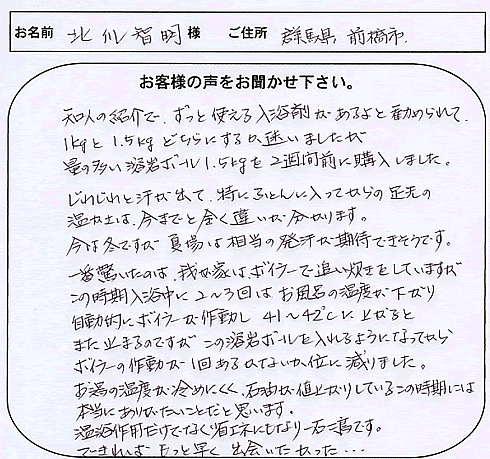 お名前 北川智明 様 ご住所 群馬県 前橋市.
お客様の声をお聞かせ下さい。
知人の紹介で、ずっと使える入浴剤があるよと勧められて、
1kgと1.5kgどちらにするか迷いましたが
量の多い溶岩ボール1.5kgを2週間前に購入しました。
じわじわと汗が出て、特にふとんに入ってからの足元の
温かさは、今までと全く違いが分かります。
今は冬ですが夏場は相当の発汗が期待できそうです。
一番驚いたのは、我が家はボイラーで追い炊きをしていますが
この時期入浴中に2〜3回はお風呂の温度が下がり
自動的にボイラーが作動し 41〜42℃に上がると
また止まるのですがこの溶岩ボールを入れるようになってから
ボイラーの作動が1回あるかないか位に減りました。
お湯の温度が冷めにくく、石油が値上がりしているこの時期には
本当にありがたいことだと思います。
温浴作用だけでなく省エネにもなり一石二鳥です。
できれば、もっと早く出会いたかった・・・